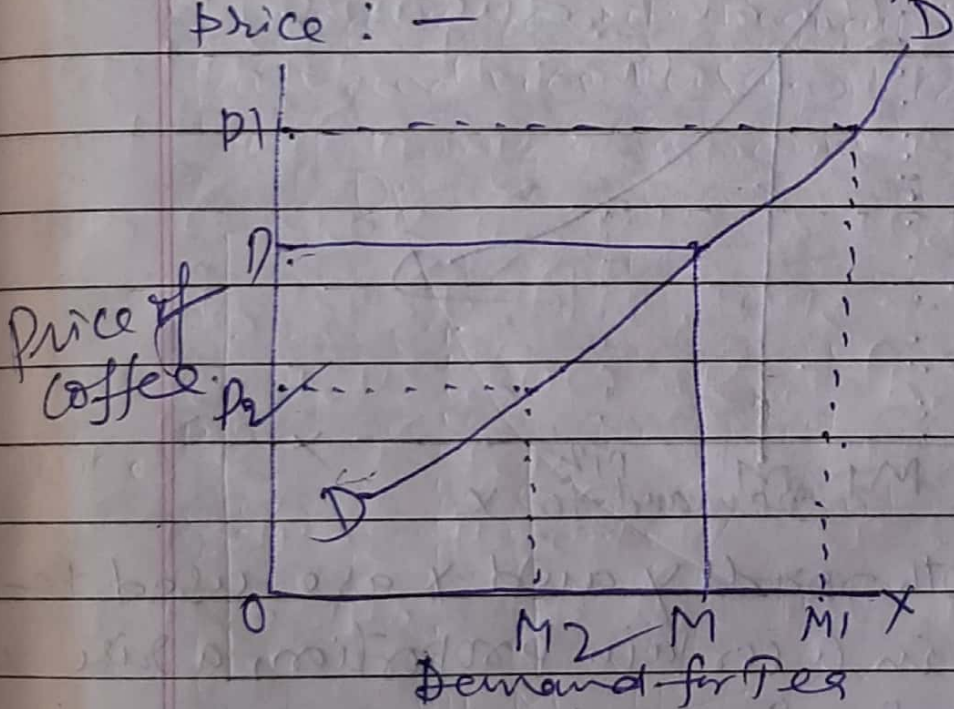 price : —
D
P1
P
Price of
coffee.
P2
D
O
M2 M M1 X
Demand for Tea